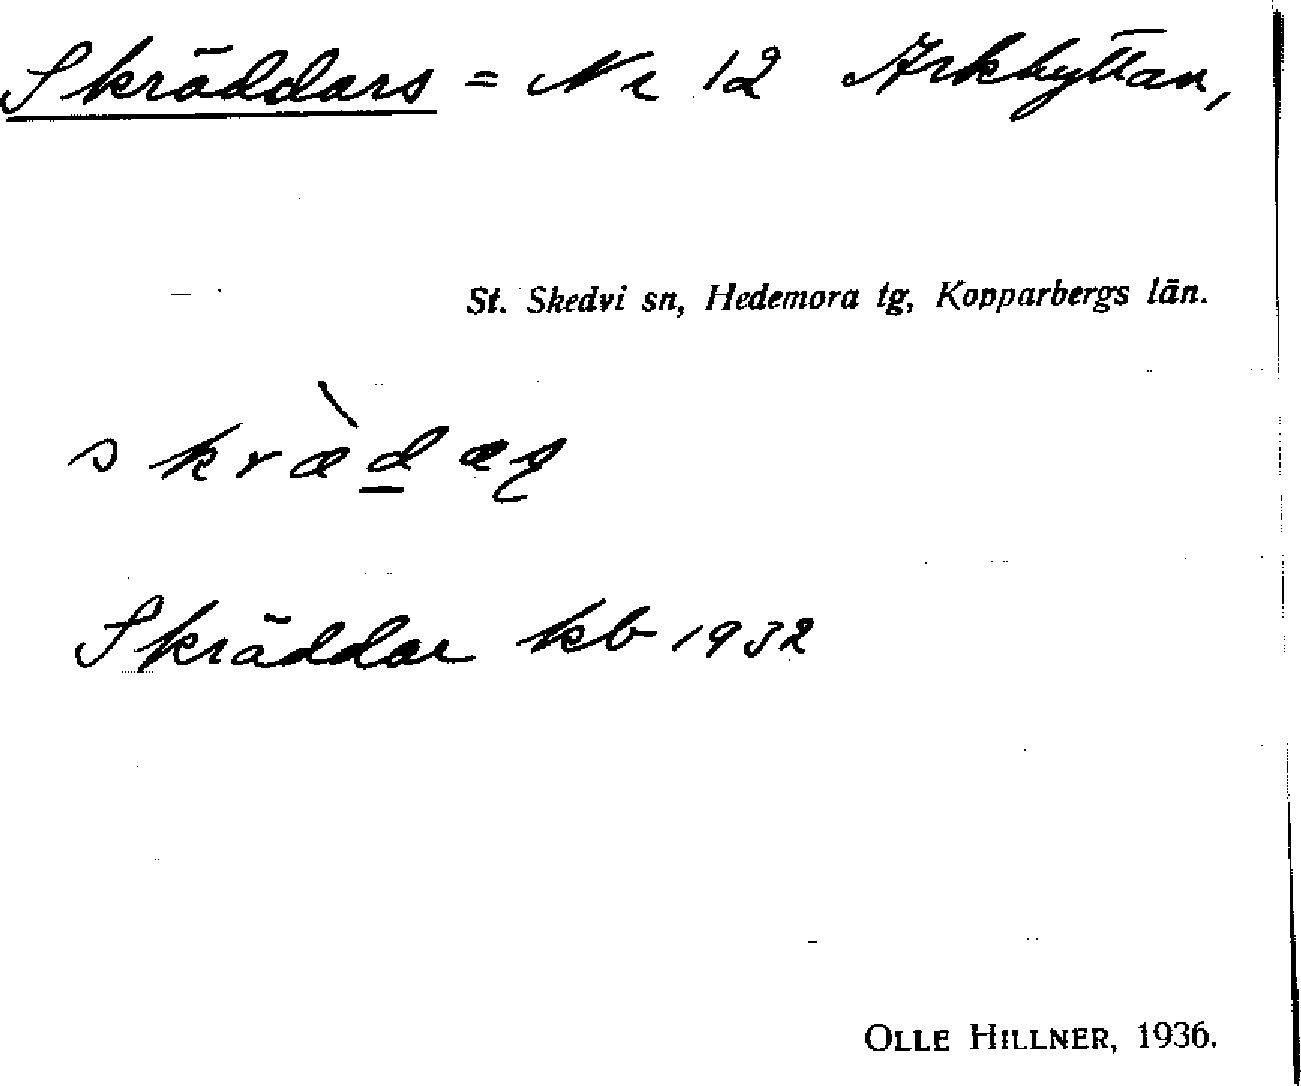 Skräddars = Nr 12 Arkhyttan,
St. Skedvi sn, Hedemora tg, Kopparbergs län.
Skräddar kb 1932
OLLE HILLNER, 1936.